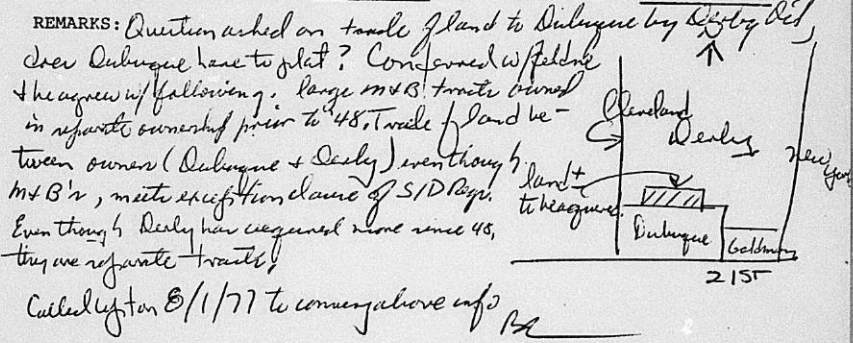 REMARKS: Question asked on trade of land to Dubuque by Derby Oil,
does Dubuque have to plat? Conferred w/
& he agrees w/ following. large M&B tracts owned
in separate ownership prior to '48. Trade of land be-
tween owners (Dubuque & Derby) even though
M&B's, meets exception clause of S/D Regs.
Even though Derby has acquired more since 48,
they are separate tracts.
Called 8/1/77 to convey above info
Cleveland
Derby
New York
land
to be acquired
Dubuque
Goldman
21ST